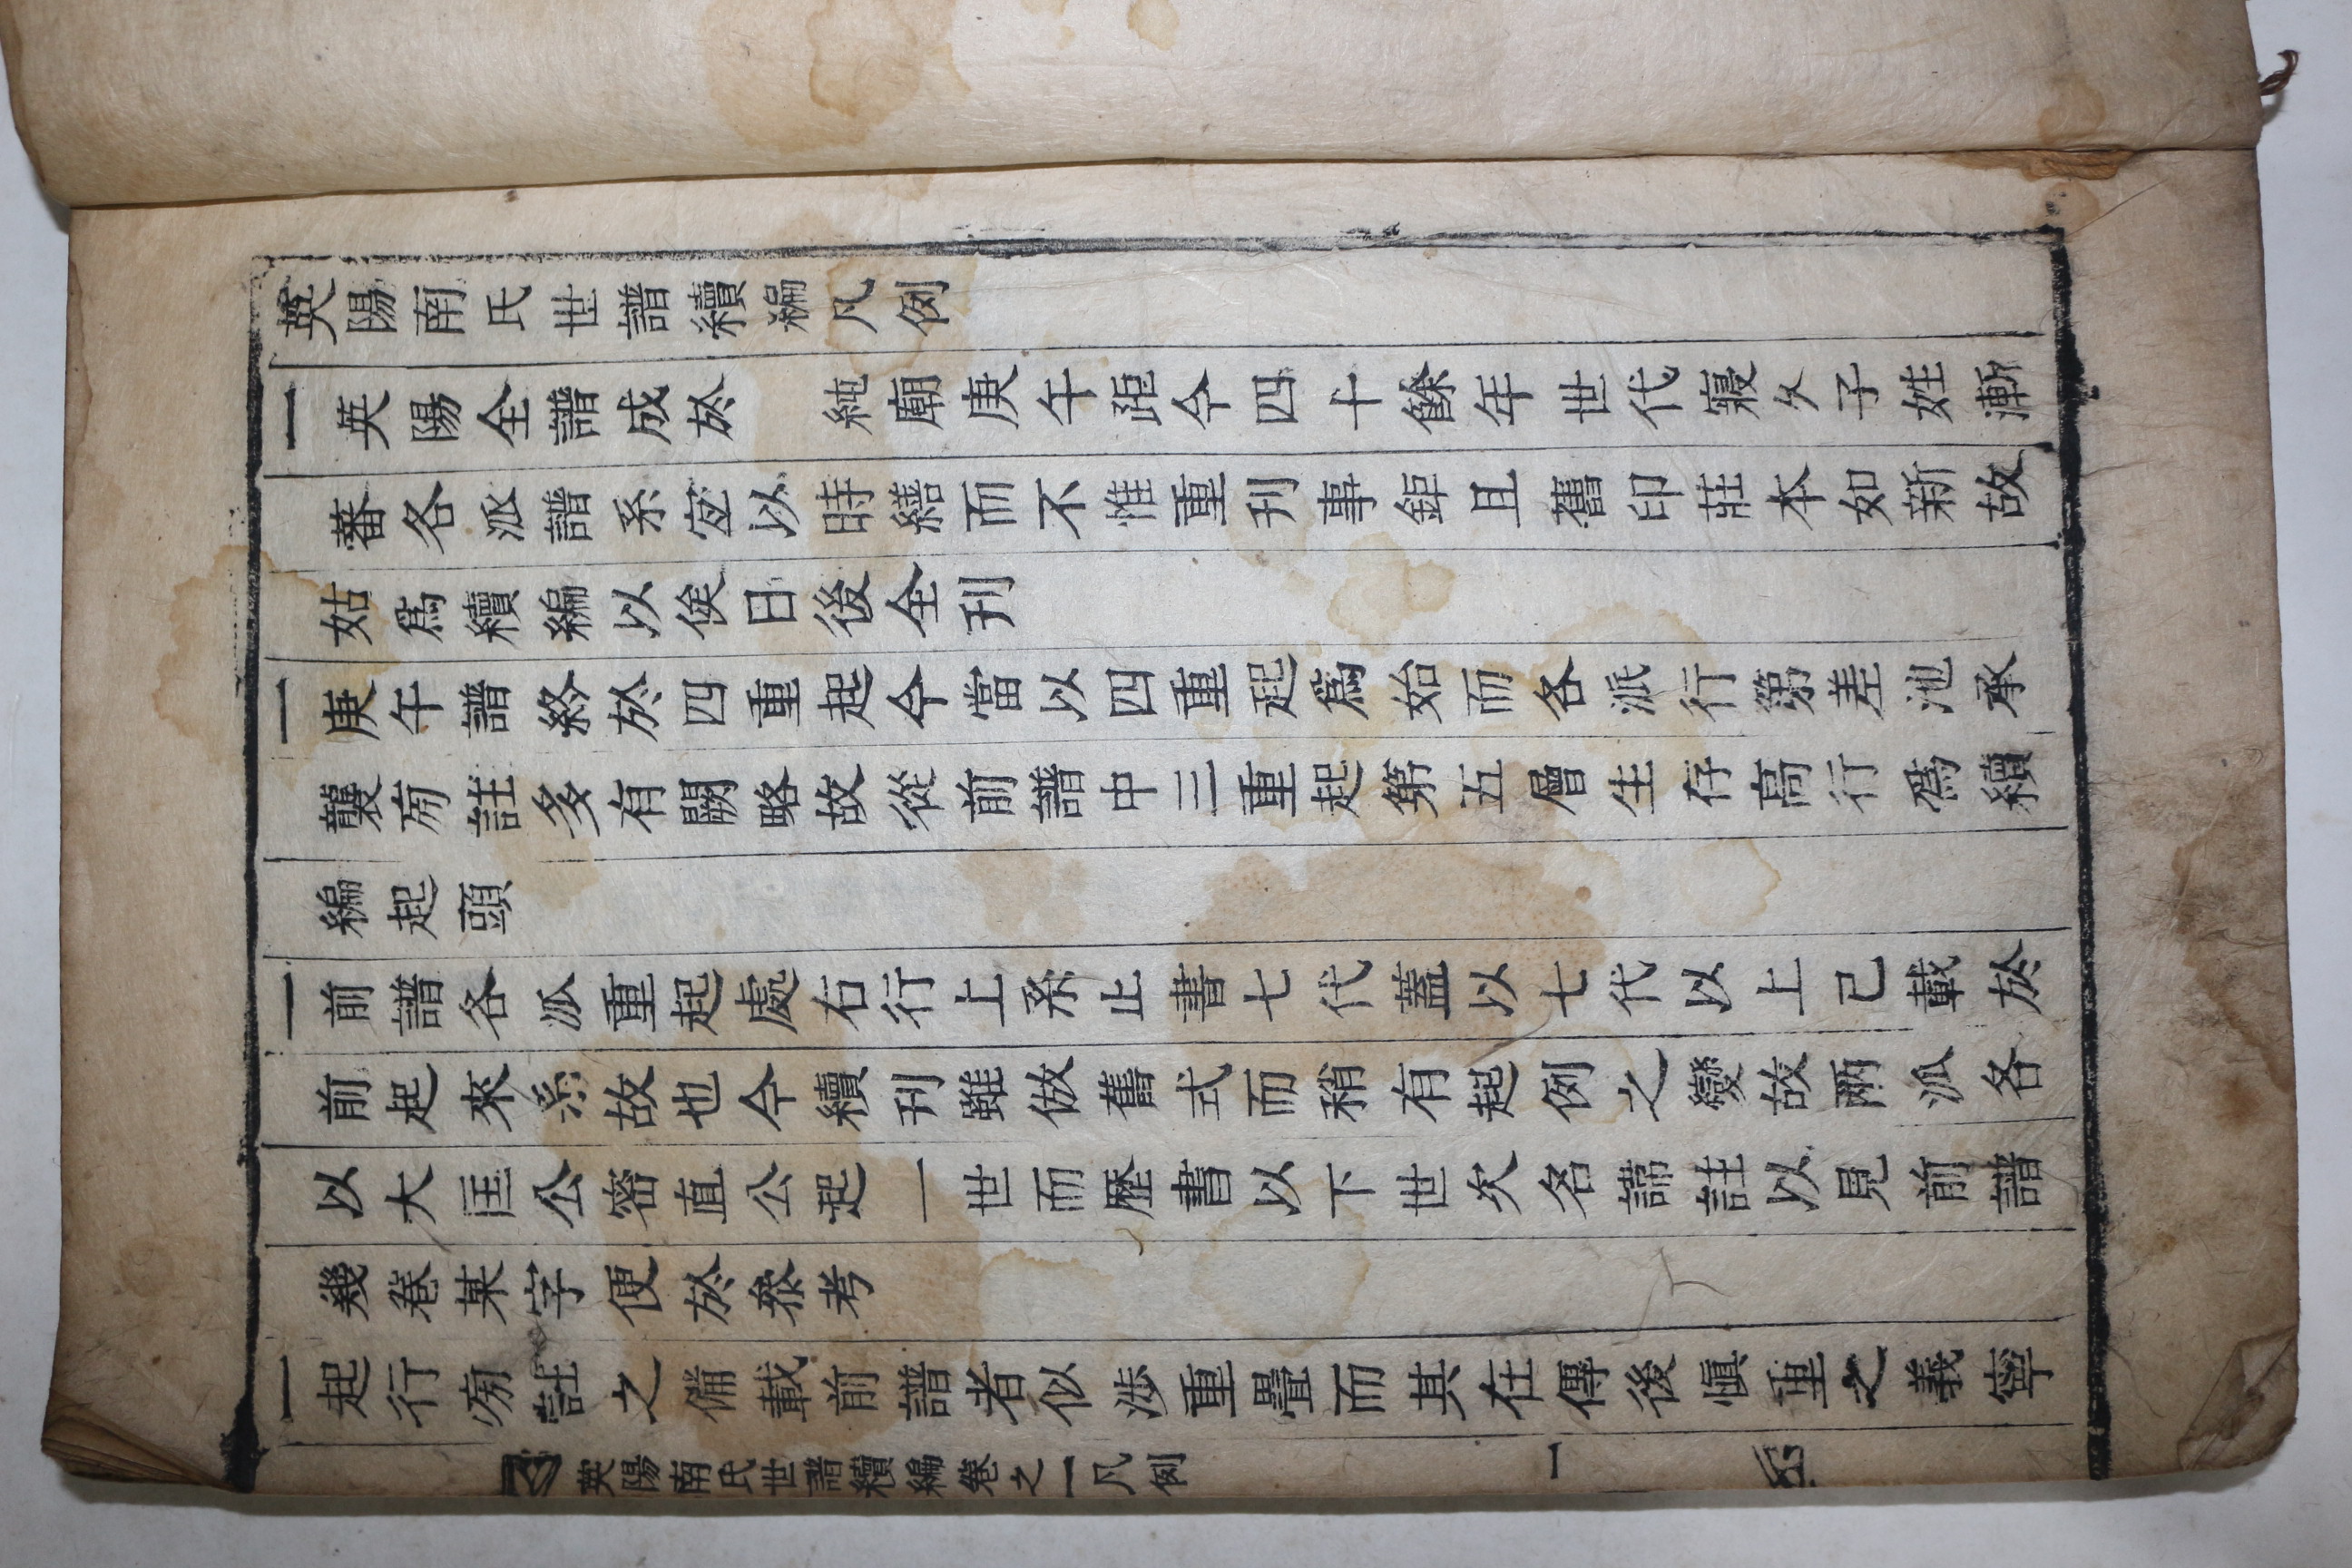 英陽南氏世譜續編凡例
一英陽全譜成於　純廟庚午距今四十餘年世代寖久子姓漸
蕃各派譜系宜以時繕而不惟重刊事鉅且舊印莊本如新故
姑爲續編以俟日後全刊
一庚午譜終於四重起今當以四重起爲始而各派行第差池承
襲旁註多有闕略故從前譜中三重起第五層生存高行爲續
編起頭
一前譜各派重起處右行上系止書七代蓋以七代以上已載於
前起來系故也今續刊雖倣舊式而稍有起例之變故兩派各
以大匡公密直公起一世而歷書以下世次名諱註以見前譜
幾卷某字便於叅考
一起行旁註之備載前譜者似涉重疊而其在傳後愼重之義寧
英陽南氏世譜續編卷之一凡例　一